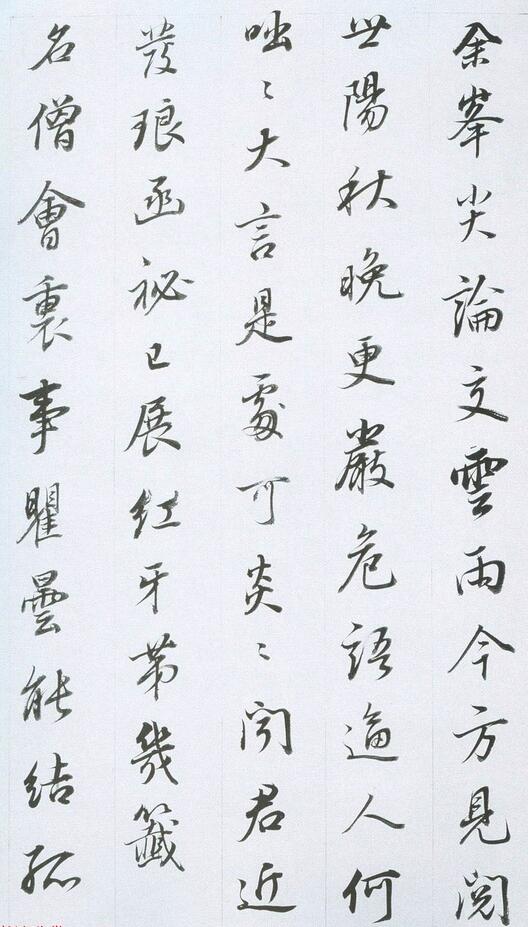 余峯尖論文雲雨今方見閱
世陽秋晚更嚴危語逼人何
咄〻大言是處可炎〻聞君近
發琅函祕已展紅牙帶幾籤
名僧會裏事瞿曇能結孤